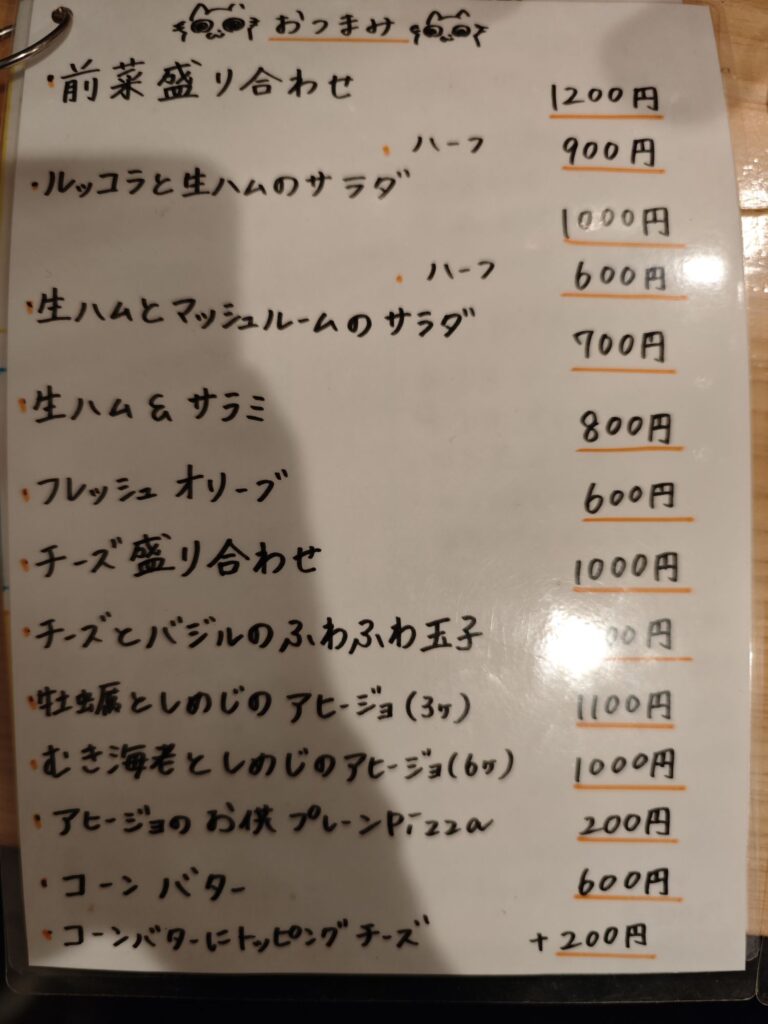 おつまみ
・前菜盛り合わせ 1200円
・ハーフ 900円
・ルッコラと生ハムのサラダ 1000円
・ハーフ 600円
・生ハムとマッシュルームのサラダ 700円
・生ハム&サラミ 800円
・フレッシュオリーブ 600円
・チーズ盛り合わせ 1000円
・チーズとバジルのふわふわ玉子 00円
・牡蠣としめじのアヒージョ(3ヶ) 1100円
・むき海老としめじのアヒージョ(6ヶ) 1000円
・アヒージョのお供 プレーンPizza 200円
・コーンバター 600円
・コーンバターにトッピングチーズ +200円